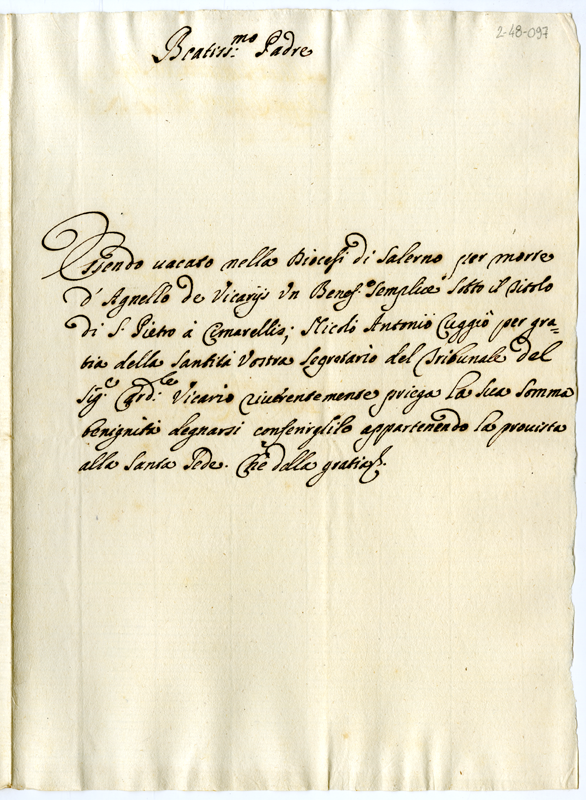 2-48-097
Beatiss:mo Padre
Essendo uacato nella Diocesi di Salerno per morte
d'Agnello de Vicarijs Vn Benef:o Semplice sotto il Titolo
di S. Pietro à Cimarellis; Nicolò Antonio Cuggiò per gra=
tia della Santità Vostra Segretario del Tribunale del
Sig:e Card:le Vicario riuerentemente priega la Sua Somma
benignità degnarsi conferirglilo appartenendo la prouista
alla Santa Sede. Che della gratia